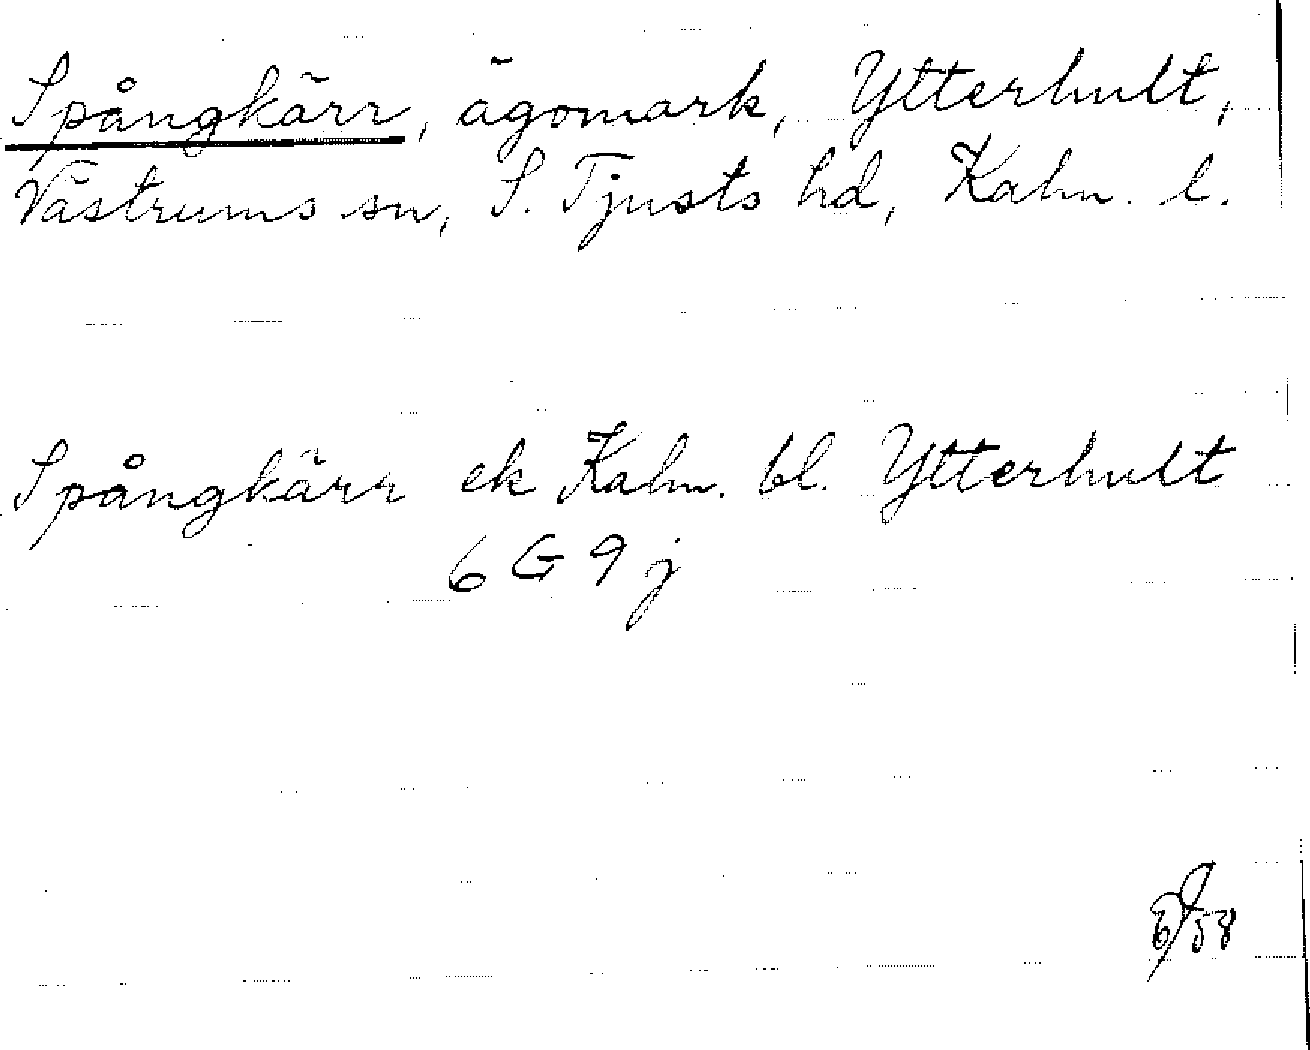 Spångkärr, ägomark, Ytterhult,
Västrums sn, S. Tjusts hd, Kalm. l.
Spångkärr ek Kalm. bl. Ytterhult
6 G 9 j